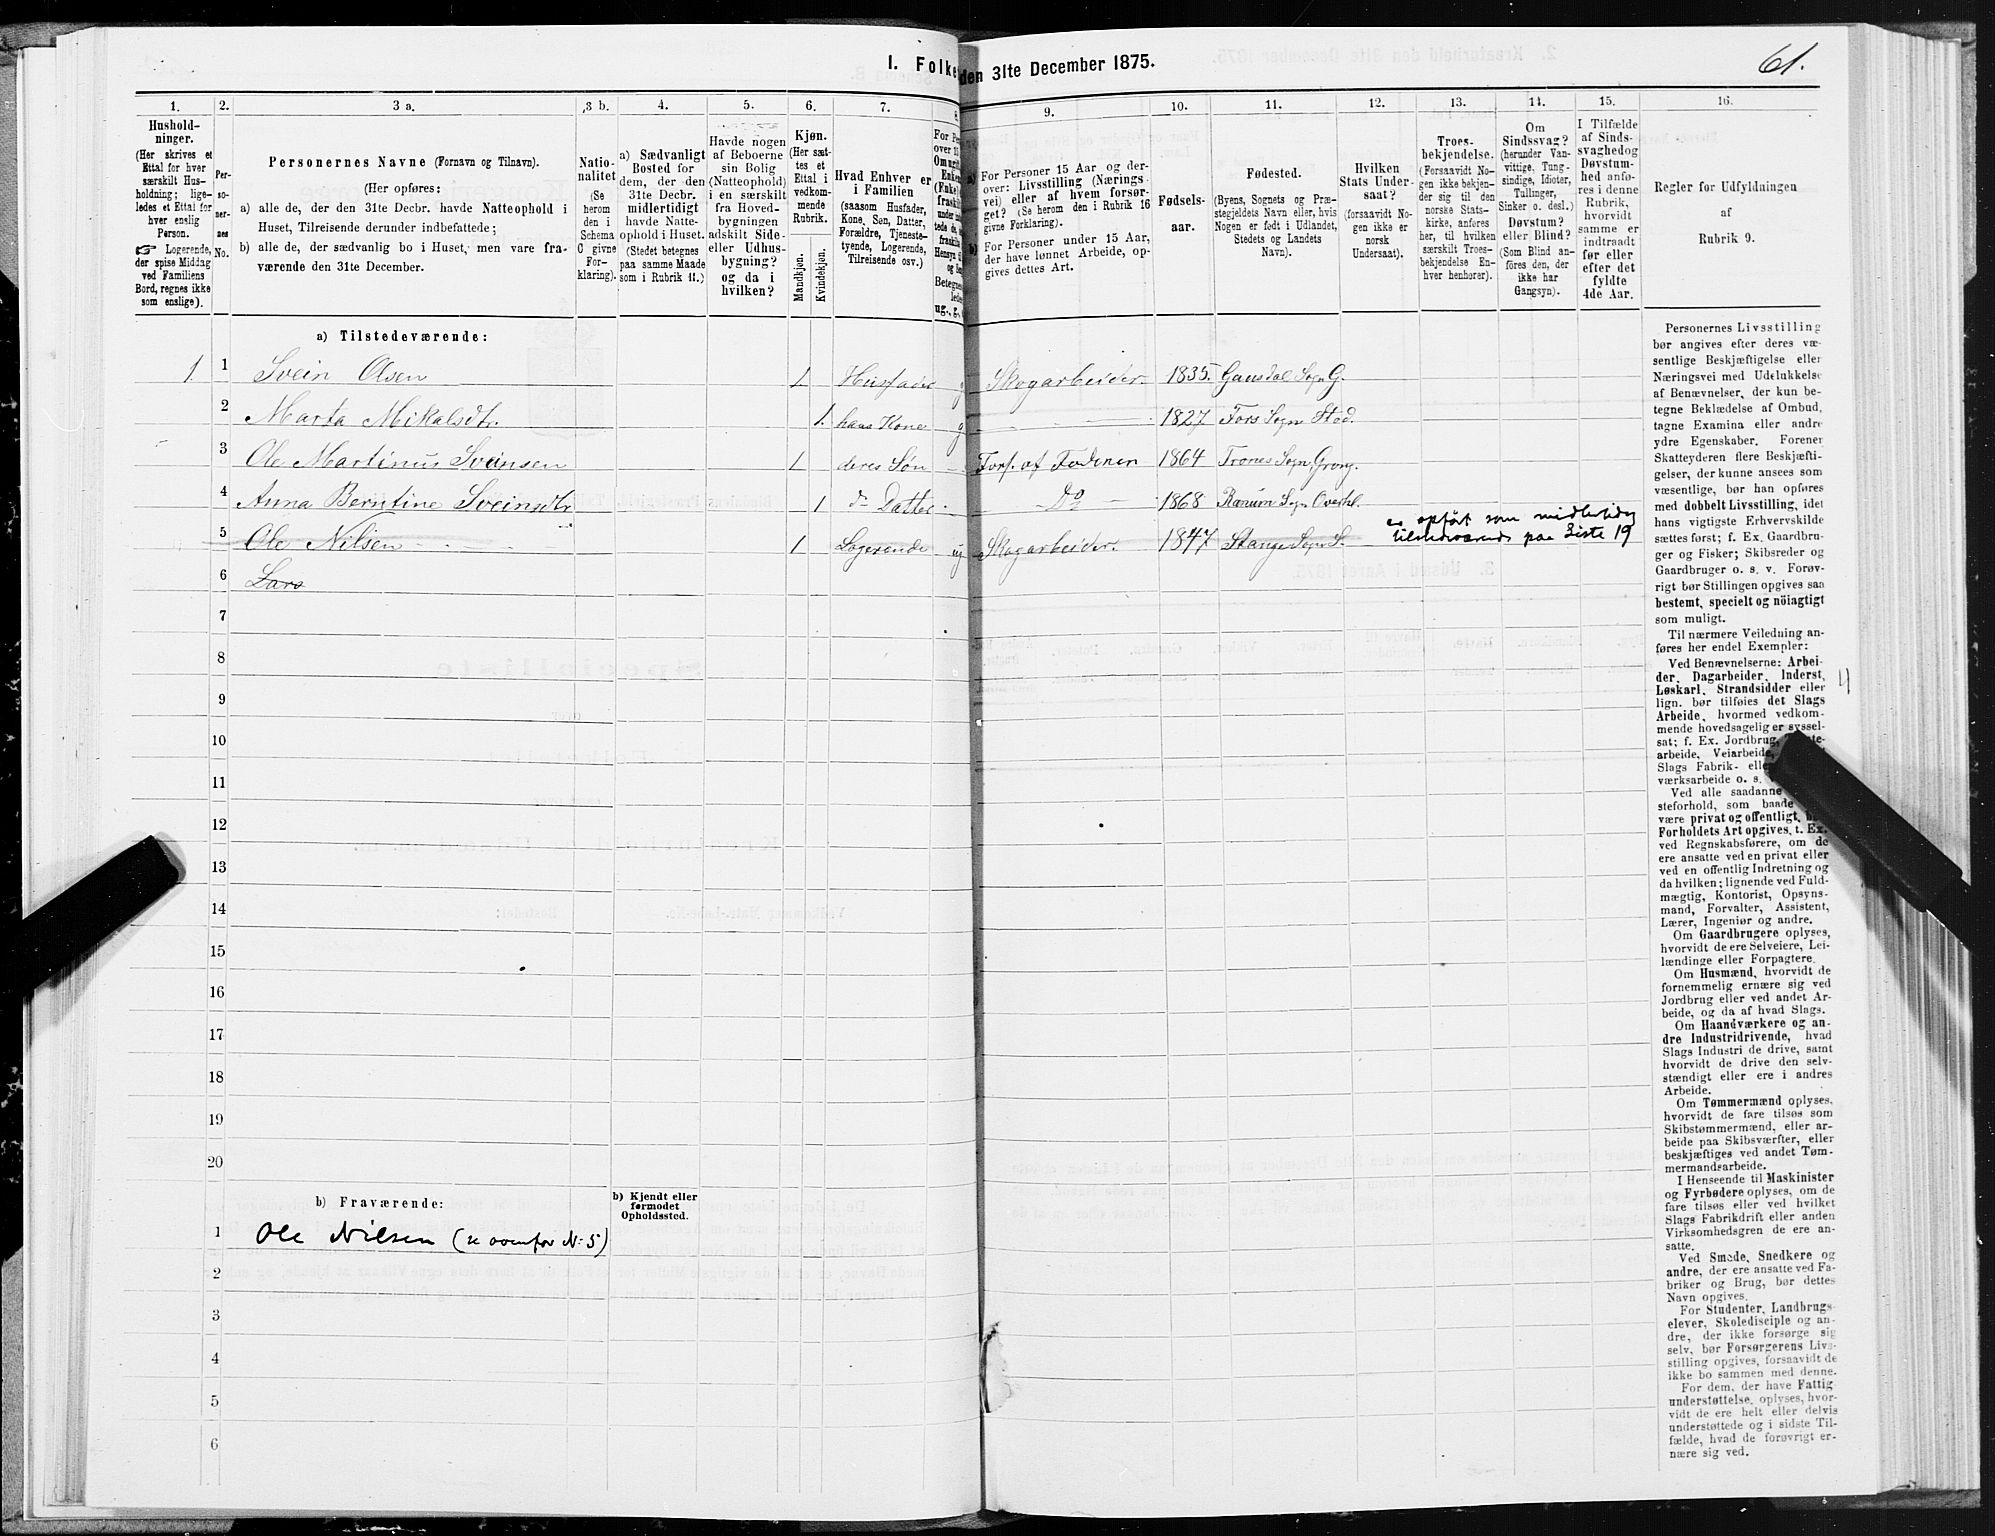 I. Folke den 31te December 1875.
61.
1.
Hushold-
ninger.
(Her skrives et
Ettal for hver
særskilt Hus-
holdning; lige-
ledes et Ettal for
hver enslig
Person.
Logerende,
der spise Middag
ved Familiens
Bord, regnes ikke
som enslige).
2.
Per-
so-
ner-
nes
No.
3 a.
Personernes Navne (Fornavn og Tilnavn).
(Her opføres:
a) alle de, der den 31te Decbr. havde Natteophold i
Huset, Tilreisende derunder indbefattede;
b) alle de, der sædvanlig bo i Huset, men vare fra-
værende den 31te December.
3 b.
Natio-
nalitet
(Se
herom
den i
Schema
C givne
For-
klaring).
4.
a) Sædvanligt
Bosted for
dem, der den
31te Decbr.
midlertidigt
havde Natte-
ophold i Huset.
(Stedet betegnes
paa samme Maade
som i Rubrik 11.)
5.
Havde nogen
af Beboerne
sin Bolig
(Natteophold)
i en særskilt
fra Hoved-
bygningen
adskilt Side-
eller Udhus-
bygning?
og da i
hvilken?
6.
Kjøn.
(Her sæt-
tes et
Ettal i
vedkom-
mende
Rubrik.
Mandkjøn.
Kvindekjøn.
7.
Hvad Enhver er
i Familien
(saasom Husfader,
Kone, Søn, Datter,
Forældre, Tjeneste-
tyende, Logerende,
Tilreisende osv.)
8.
For Per
over 15
Omugift
Enkem
(Enke)
fraskilt
under ind
tede de, so
fraskilte
Hensyn ti
og Bor
Betegnes
lede
ug., g.,
9.
a) For Personer 15 Aar og der-
over: Livsstilling (Nærings-
vei) eller af hvem forsør-
get? (Se herom den i Rubrik 16
givne Forklaring).
b) For Personer under 15 Aar,
der have lønnet Arbeide, op-
gives dettes Art.
10.
Fødsels-
aar.
11.
Fødested.
(Byens, Sognets og Præ-
stegjeldets Navn eller, hvis
Nogen er født i Udlandet,
Stedets og Landets
Navn).
12.
Hvilken
Stats Under-
saat?
(forsaavidt No-
gen ikke er
norsk
Undersaat).
13.
Troes-
bekjendelse.
(Forsaavidt No-
gen ikke bekjen-
der sig til den
norske Stats-
kirke, anføres
her, til hvilken
særskilt Troes-
bekjendelse En-
hver henhører).
14.
Om
Sindssvag?
(herunder Van-
vittige, Tung-
sindige, Idioter,
Tullinger,
Sinker o. desl.)
Døvstum?
eller Blind?
(Som Blind an-
føres den, der
ikke har
Gangsyn).
15.
I Tilfælde
af Sinds-
svaghed og
Døvstum-
hed anfø-
res i denne
Rubrik,
hvorvidt
samme er
indtraadt
før eller
efter det
fyldte
4de Aar.
16.
Regler for Udfyldningen
af
Rubrik 9.
a) Tilstedeværende:
1. 1 Svein Olsen 1 Husfader g Skogarbeider. 1835. Gausdal Sogn G.
2 Marta Mikalsdtr. 1. hans Kone g 1827 Fors Sogn Stod.
3 Ole Martinus Sveinsen 1 deres Søn Fors. af Faderen 1864 Trones Sogn, Grong.
4 Anna Berntine Sveinsdtr 1 d Datter Do 1868 Ranum Sogn Overhl.
er opført som midlertidig
5 Ole Nilsen 1 Logerende ug Skogarbeider. 1847 Stange Sogn S. tilstedeværende paa Liste 19
6 Lars
7
8
9
10
11
12
13
14
15
16
17
18
19
20
b) Fraværende:
b) Kjendt eller
formodet
Opholdssted.
1 Ole Nilsen (se ovenfor N: 5)
2
3
4
5
6
Personernes Livsstilling
bør angives efter deres væ-
sentlige Beskjæftigelse eller
Næringsvei med Udelukkelse
af Benævnelser, der kun be-
tegne Beklædelse af Ombud,
tagne Examina eller andre
ydre Egenskaber. Forener
Skatteyderen flere Beskjæfti-
gelser, der kunne ansees som
væsentlige, bør han opføres
med dobbelt Livsstilling, idet
hans vigtigste Erhvervskilde
sættes først; f. Ex. Gaardbru-
ger og Fisker; Skibsreder og
Gaardbruger o. s. v. Forøv-
rigt bør Stillingen opgives saa
bestemt, specielt og nöiagtigt
som muligt.
Til nærmere Veiledning an-
føres her endel Exempler:
Ved Benævnelserne: Arbei-
der, Dagarbeider, Inderst,
Løskarl, Strandsidder eller
lign. bør tilføies det Slags
Arbeide, hvormed vedkom-
mende hovedsagelig er syssel-
sat; f. Ex. Jordbrug,
arbeide, Veiarbeide,
Slags Fabrik- elle
værksarbeide o. s.
Ved alle saadanne
steforhold, som baade
være privat og offentligt,
Forholdets Art opgives, t. Ex.
ved Regnskabsførere, om de
ere ansatte ved en privat eller
ved en offentlig Indretning og
da hvilken; lignende ved Fuld-
mægtig, Kontorist, Opsyns-
mand, Forvalter, Assistent,
Lærer, Ingeniør og andre.
Om Gaardbrugere oplyses,
hvorvidt de ere Selveiere, Lei-
lændinge eller Forpagtere.
Om Husmænd, hvorvidt de
fornemmelig ernære sig ved
Jordbrug eller ved andet Ar-
beide, og da af hvad Slags.
Om Haandværkere og an-
dre Industridrivende, hvad
Slags Industri de drive, samt
hvorvidt de drive den selv-
stændigt eller ere i andres
Arbeide.
Om Tømmermænd oplyses,
hvorvidt de fare tilsøs som
Skibstømmermænd, eller ar-
beide paa Skibsværfter, eller
beskjæftiges ved andet Tøm-
mermandsarbeide.
I Henseende til Maskinister
og Fyrbødere oplyses, om de
fare tilsøs eller ved hvilket
Slags Fabrikdrift eller anden
Virksomhedsgren de ere an-
satte.
Ved Smede, Snedkere og
andre, der ere ansatte ved Fa-
briker og Brug, bør dettes
Navn opgives.
For Studenter, Landbrugs-
elever, Skoledisciple og an-
dre, der ikke forsørge sig
selv, bør Forsørgerens Livs-
stilling opgives, forsaavidt de
ikke bo sammen med denne.
For dem, der have Fattig-
understøttelse, oplyses, hvor-
vidt de ere helt eller delvis
understøttede og i sidste Til-
fælde, hvad de forøvrigt er-
nære sig ved.